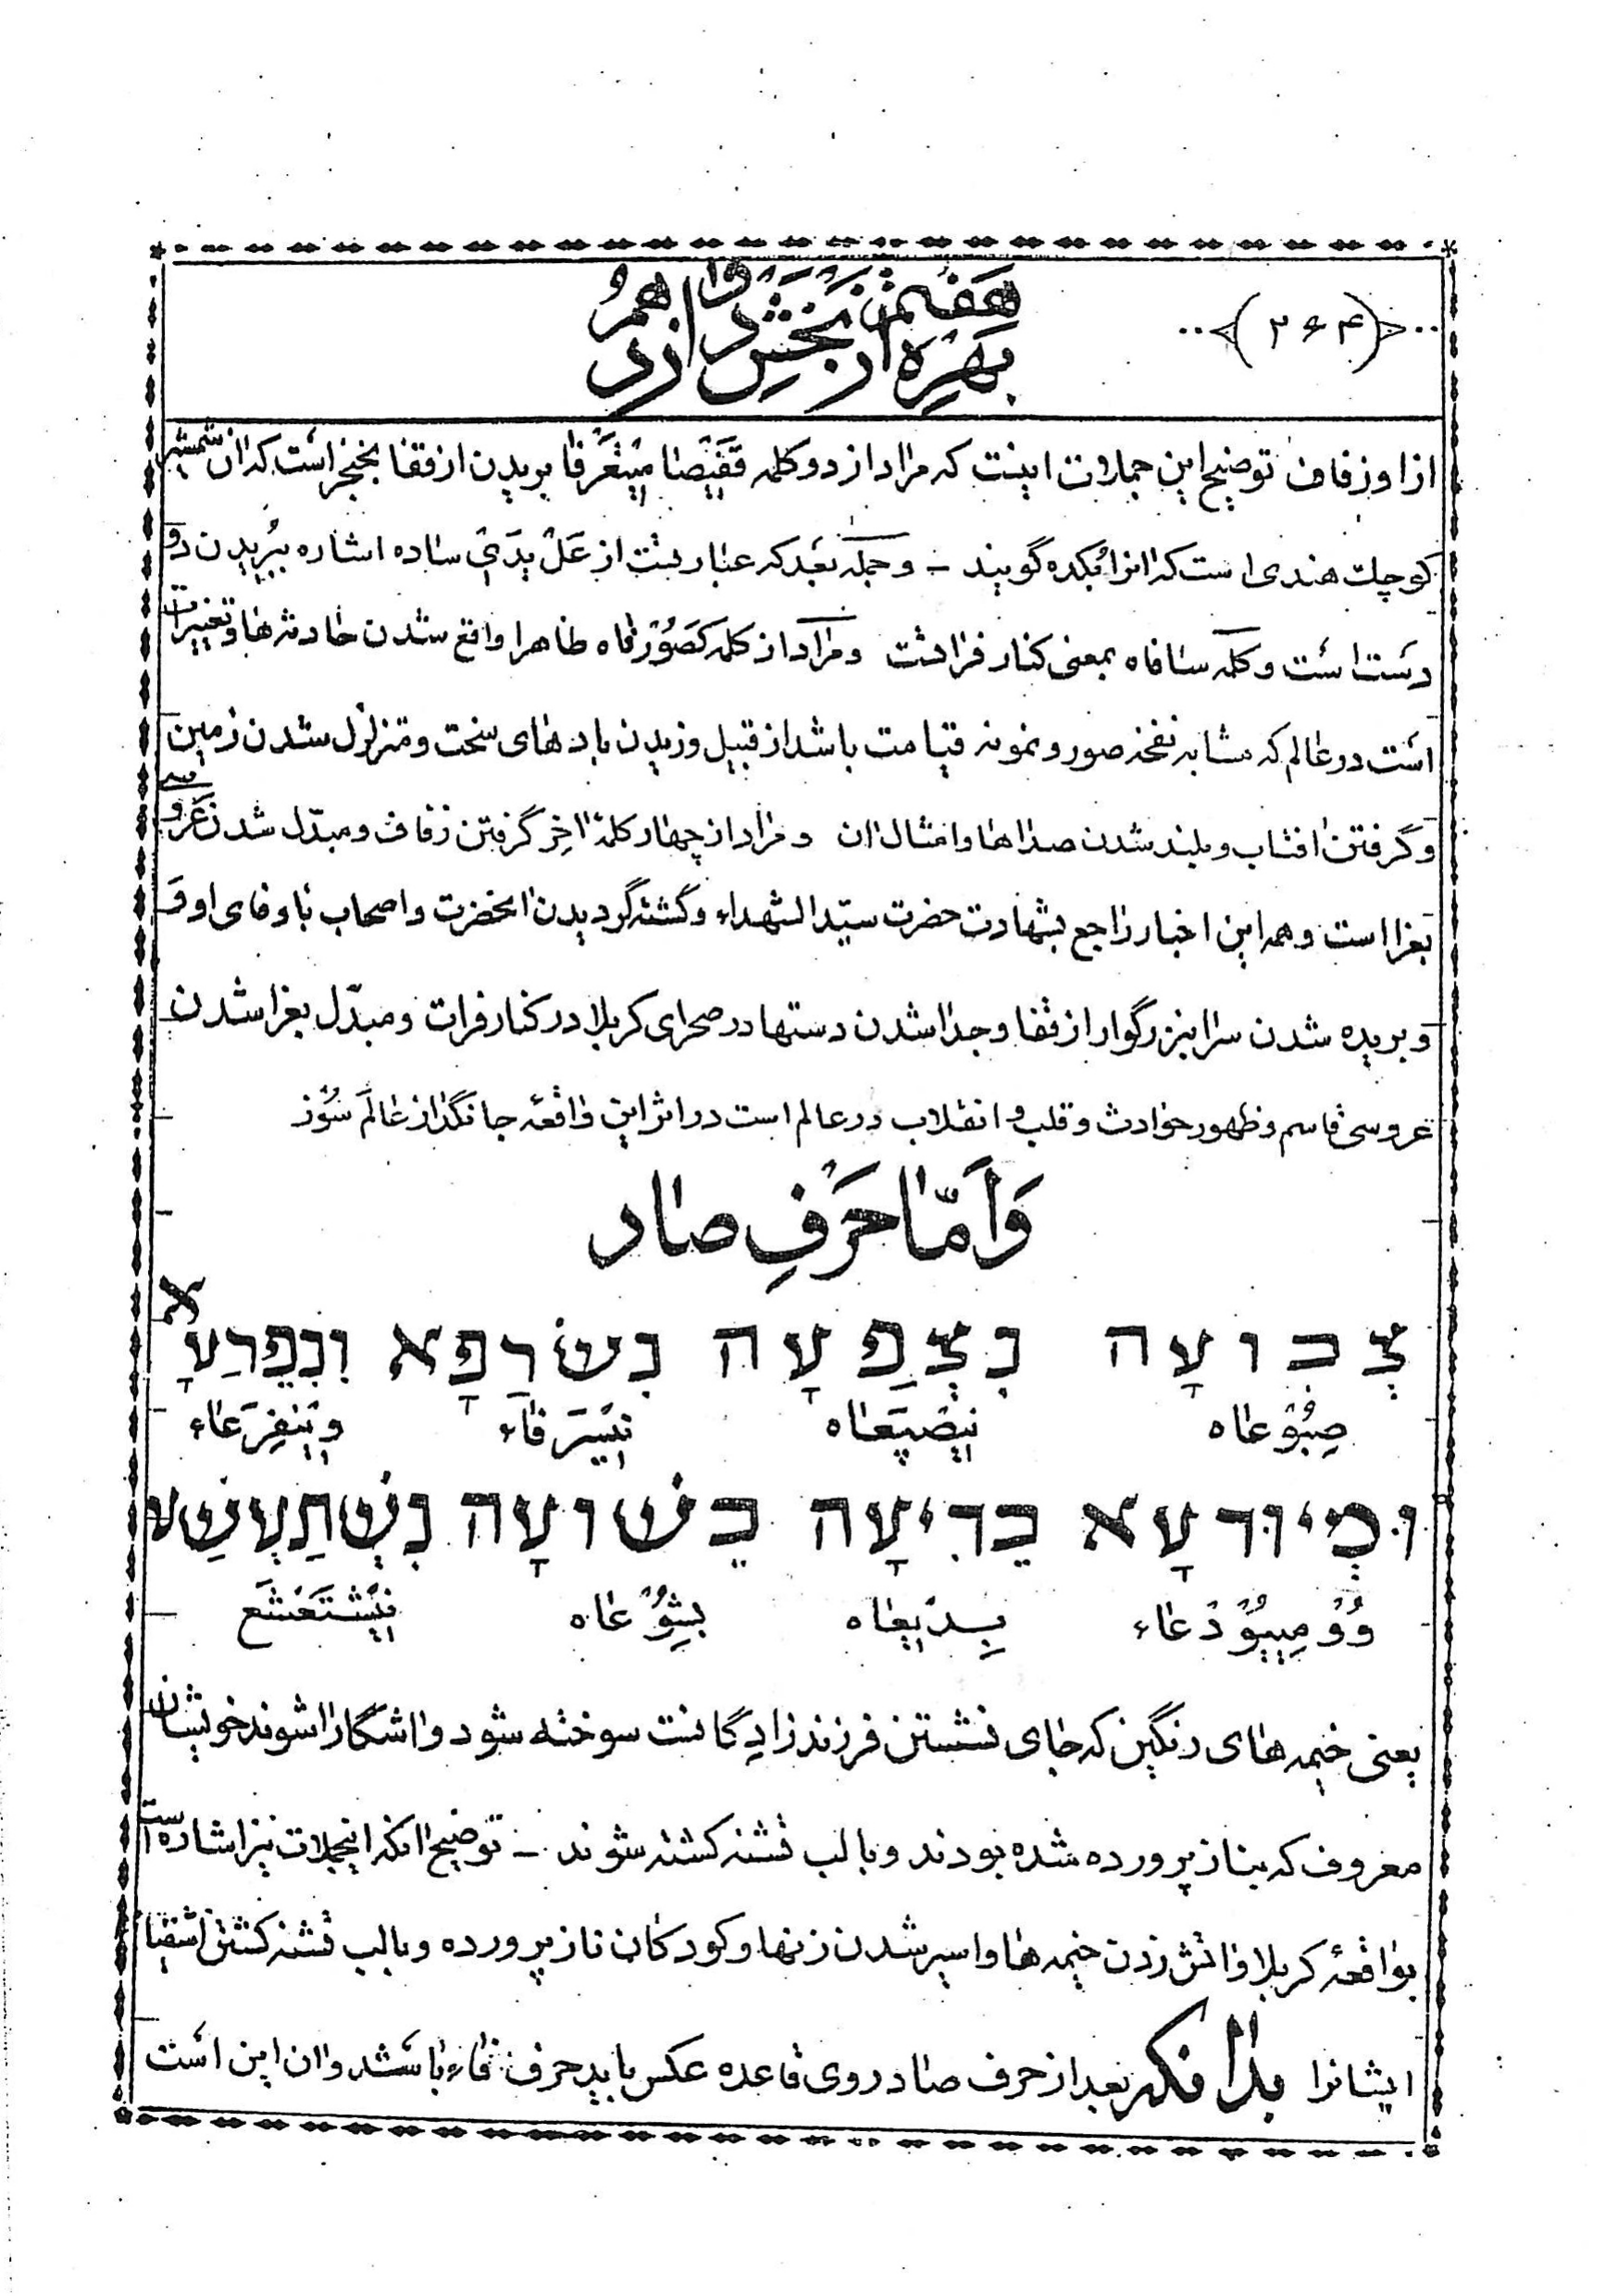 ﴿۲۶۴﴾
هفتمین بهره از بخش دوازدهم
از او زفاف توضیح این جملات اینست که مراد از دو کلمه قَفیصنا مینغَرفا بریدن از قفا بخنجر است که ان شمشیر
کوچک هندی است که انرا کُبکده گویند - و جمله بعد که عبارتست از عَل یدَیَ ساده اشاره ببُریدن دو
دست است و کلمه سافاه بمعنی کنار فراتست و مراد از کلمه کصَوُرفاه ظاهرا واقع شدن حادثه ها و تغییرات
است در عالم که مشابه نفخه صور و نمونه قیامت باشد از قبیل وزیدن بادهای سخت و متزلزل شدن زمین
و گرفتن افتاب و بلند شدن صداها و امثال ان و مراد از چهار کلمهٔ اخِر گرفتن زفاف و مبدّل شدن عَروسے
بعزا است و همه این اخبار راجع بشهادت حضرت سیّدالشهداء و کشته گردیدن انحضرت و اصحاب باوفای او وَ
و بریده شدن سر انبزرگوار از قفا و جدا شدن دستها در صحرای کربلا در کنار فرات و مبدّل بعزا شدن
عروسی قاسم و ظهور حوادث و قلب و انقلاب در عالم است در اثر این واقعهٔ جانگداز عالَم سُوز
وَاَمّا حَرفِ صاد
צְבוּעָה נִצְפַּעָה נִשׂרַפָא וְנִפְרֵעָא
صِبُوُعاه نیٖصْپَعاه نیٖسَرَفاء وِینفِرَعاء
וּמְיוּדָעָא בֵּדִיעָה בֵּשׁוּעָה נִשְׁתַעְשַׁע
وُوُ مِییوُ دَعاء بِدّیٖعاه بِشوُعاه نیٖشتَعشَع
یعنی خیمه های رنگین که جای نشستن فرزند زادگانست سوخته شود و اشکارا شوند خویشان
معروف که بناز پرورده شده بودند و با لب تشنه کشته شوند - توضیح انکه اینجملات نیز اشاره است
بواقعهٔ کربلا و اتش زدن خیمه ها و اسیر شدن زنها و کودکان ناز پرورده و با لب تشنه کشتن اشقیا
ایشانرا بدانکه بعد از حرف صاد روی قاعده عکس باید حرف فاء باشد و ان این است